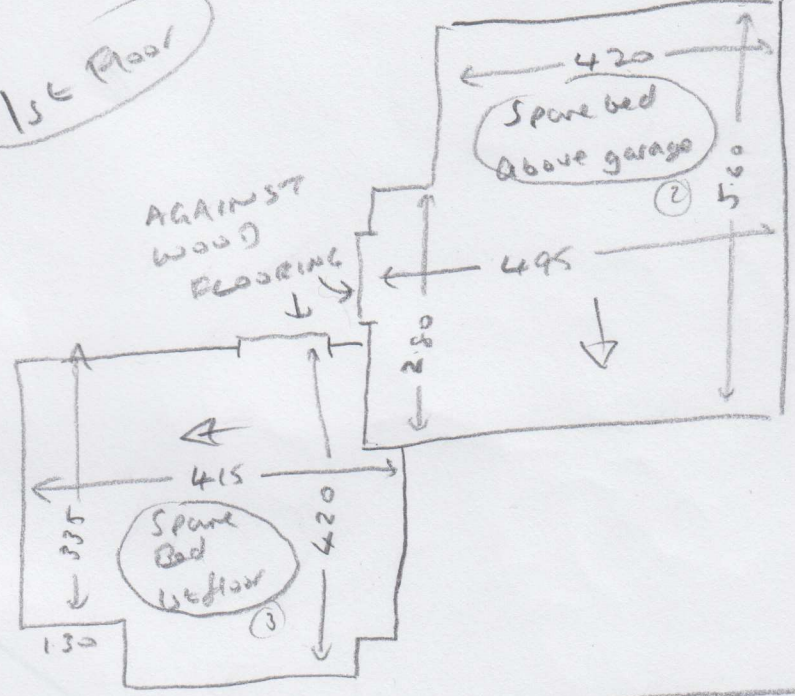 1st Floor
420
Spare bed
above garage
2
5.60
AGAINST
WOOD
FLOORING
495
2.80
415
335
Spare
Bed
1st floor
3
420
1.30